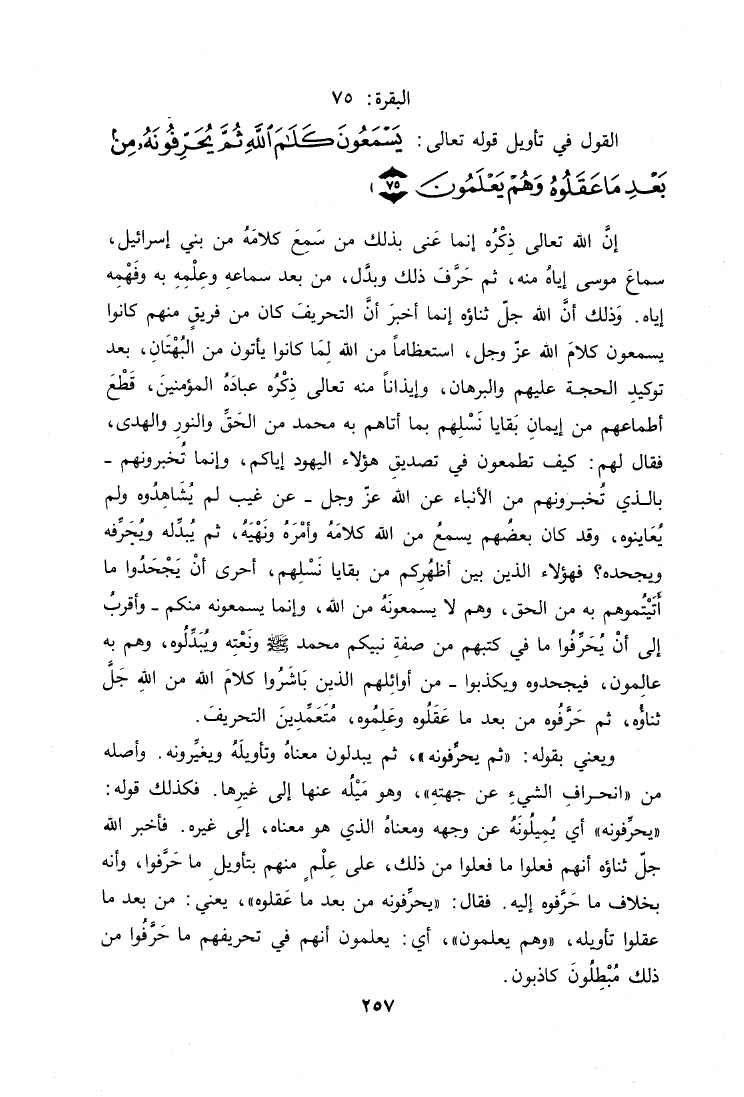 البقرة: ٧٥
القول في تأويل قوله تعالى: يَسْمَعُونَ كَلَٰمَ ٱللَّهِ ثُمَّ يُحَرِّفُونَهُۥ مِنۢ
بَعْدِ مَا عَقَلُوهُ وَهُمْ يَعْلَمُونَ ﴿٧٥﴾
إنَّ الله تعالى ذِكْرُه إنما عَنى بذلك من سَمِعَ كلامَهُ من بني إسرائيل،
سماعَ موسى إياهُ منه، ثم حَرَّفَ ذلك وبدَّل، من بعد سماعهِ وعِلْمِهِ به وفَهْمِه
إياه. وَذلك أنَّ الله جلّ ثناؤه إنما أخبرَ أنَّ التحريفَ كان من فريقٍ منهم كانوا
يسمعون كلامَ الله عزّ وجل، استعظاماً من الله لِمَا كانوا يأتون من البُهْتَانِ، بعد
توكيدِ الحجة عليهم والبرهان، وإيذاناً منه تعالى ذِكْرُه عبادَهُ المؤمنينَ، قَطْعَ
أطماعهم من إيمانِ بَقايا نَسْلِهم بما أتاهم به محمد من الحَقِّ والنورِ والهدى،
فقال لهم: كيف تطمعون في تصديقِ هؤلاء اليهود إياكم، وإنما تُخبرونهم -
بالذي تُخبرونهم من الأنباء عن الله عزّ وجل - عن غيب لم يُشَاهِدُوه ولم
يُعَاينوه، وقد كان بعضُهم يسمعُ من الله كلامَهُ وأمْرَهُ ونَهْيَهُ، ثم يُبدِّله ويُحَرِّفه
ويجحده؟ فهؤلاء الذين بين أظهُرِكم من بقايا نَسْلِهم، أحرى أنْ يَجْحَدُوا ما
أَتَيْتُموهم به من الحق، وهم لا يسمعونَهُ من الله، وإنما يسمعونه منكم - وأقربُ
إلى أنْ يُحَرِّفُوا ما في كتبهم من صفةِ نبيكم محمد ﷺ ونَعْتِه ويُبَدِّلُوه، وهم به
عالِمون، فيجحدوه ويكذبوا - من أوائلِهم الذين بَاشَرُوا كلامَ الله من اللهِ جَلَّ
ثناؤُه، ثم حَرَّفُوه من بعد ما عَقَلُوه وعَلِمُوه، مُتَعَمِّدِينَ التحريفَ.
ويعني بقوله: «ثم يحرِّفونه»، ثم يبدلون معناهُ وتأويلَهُ ويغيِّرونه. وأصله
من «انحرافِ الشيءِ عن جهتهِ»، وهو مَيْلُه عنها إلى غيرها. فكذلك قوله:
«يحرِّفونه» أي يُمِيلُونَهُ عن وجهه ومعناهُ الذي هو معناه، إلى غيره. فأخبر الله
جلّ ثناؤه أنهم فعلوا ما فعلوا من ذلك، على عِلْمٍ منهم بتأويلِ ما حَرَّفوا، وأنه
بخلاف ما حَرَّفوه إليه. فقال: «يحرِّفونه من بعد ما عَقلوه»، يعني: من بعد ما
عقلوا تأويله، «وهم يعلمون»، أي: يعلمون أنهم في تحريفهم ما حَرَّفُوا من
ذلك مُبْطِلُونَ كاذبون.
٢٥٧